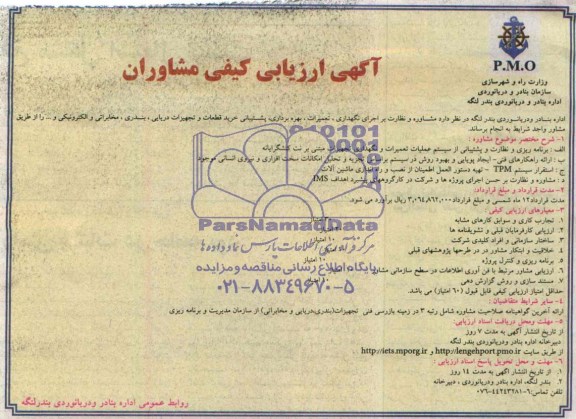 P.M.O
وزارت راه و شهرسازی
سازمان بنادر و دریانوردی
اداره بنادر و دریانوردی بندر لنگه
آگهی ارزیابی کیفی مشاوران
اداره بنادر ودریانوردی بندر لنگه در نظر دارد مشاوره و نظارت بر اجرای نگهداری ، تعمیرات ، بهره برداری، پشتیبانی خرید قطعات و تجهیزات دریایی ، بندری ، مخابراتی و الکترونیکی و... را از طریق
مشاور واجد شرایط به انجام برساند.
۱- شرح مختصر موضوع مشاوره :
الف : برنامه ریزی و نظارت و پشتیبانی از سیستم عملیات تعمیرات و نگهداری تجهیزات مبتنی بر نت کنشگرایانه
ب : ارائه راهکارهای فنی- ایجاد پویایی و بهبود روش در سیستم براساس تجربه و تحلیل امکانات سخت افزاری و نیروی انسانی موجود
ج : استقرار سیستم TPM - تهیه دستور العمل اطمینان از نصب و راه اندازی ماشین آلات
د : مشاوره و نظارت بر حسن اجرای پروژه ها و شرکت در کارگروههای پیشبرد اهداف IMS
۲- مدت قرارداد و مبلغ قرارداد:
مدت قرارداد۱۲ ماه شمسی و مبلغ قرارداد ۳,۰۶۴,۸۶۲,۰۰۰ ریال برآورد می شود.
۳- معیارهای ارزیابی کیفی :
۱. تجارب کاری و سوابق کارهای مشابه
۲. ارزیابی کارفرمایان قبلی و تشویقنامه ها
۳. ساختار سازمانی و افراد کلیدی شرکت
۴. خلاقیت و ابتکار مشاور در طرحها پژوهشهای قبلی
۵. برنامه ریزی و کنترل پروژه
۶. ارزیابی مشاور مرتبط با فن آوری اطلاعات در سطح سازمانی مشاور
۷. مستند سازی و روش گزارش دهی
حداقل امتیاز ارزیابی کیفی قابل قبول (۶۰ امتیاز) می باشد.
۴- سایر شرایط متقاضیان :
ارائه آخرین گواهینامه صلاحیت مشاوره شامل رتبه ۳ در زمینه بازرسی فنی تجهیزات(بندری،دریایی و مخابراتی) از سازمان مدیریت و برنامه ریزی
۵- مهلت ومحل دریافت اسناد ارزیابی:
از تاریخ انتشار آگهی به مدت ۷ روز
دبیرخانه اداره بنادر ودریانوردی بندر لنگه
از طریق سایت http://lengehport.pmo.ir و http://iets.mporg.ir
۶- مهلت و محل تحویل پاسخ اسناد ارزیابی :
۱. از تاریخ انتشار آگهی به مدت ۱۴ روز
۲. بندر لنگه، اداره بنادر ودریانوردی ، دبیرخانه
تلفن تماس: ۶-۰۷۶-۴۴۲۴۳۲۸۱
روابط عمومی اداره بنادر ودریانوردی بندرلنگه
ParsNamadData
مرکز فرآوری اطلاعات پارس نماد داده ها
پایگاه اطلاع رسانی مناقصه و مزایده
۰۲۱-۸۸۳۴۹۶۷۰-۵